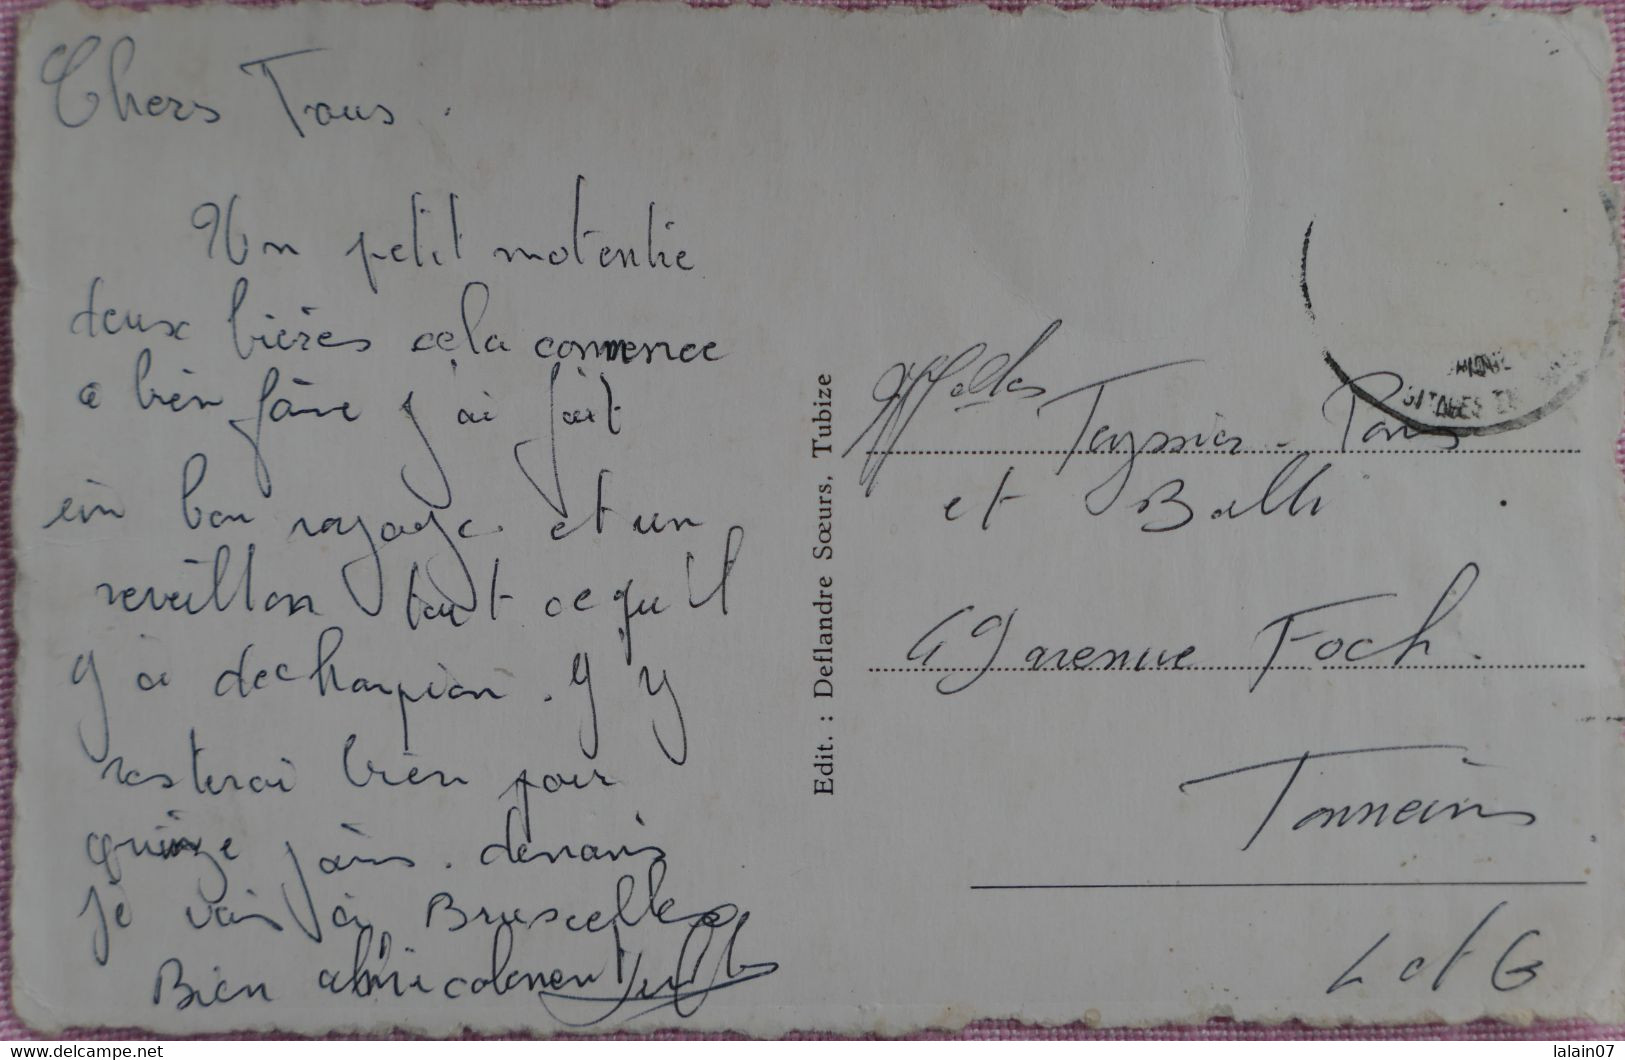 Chers Tous.
Un petit mot entre
deux bières cela commence
a bien faire j'ai fait
un bon voyage. et un
reveillon tout ce qu'il
y a de champion. J'y
resterai bien pour
quinze jours. demain
je vais à Bruxelles
Bien amicalement
Edit. : Deflandre Sœurs, Tubize
Teyssier - Pons
et Balli
49 avenue Foch.
Tonneins
L et G
delcampe.net
lalain07